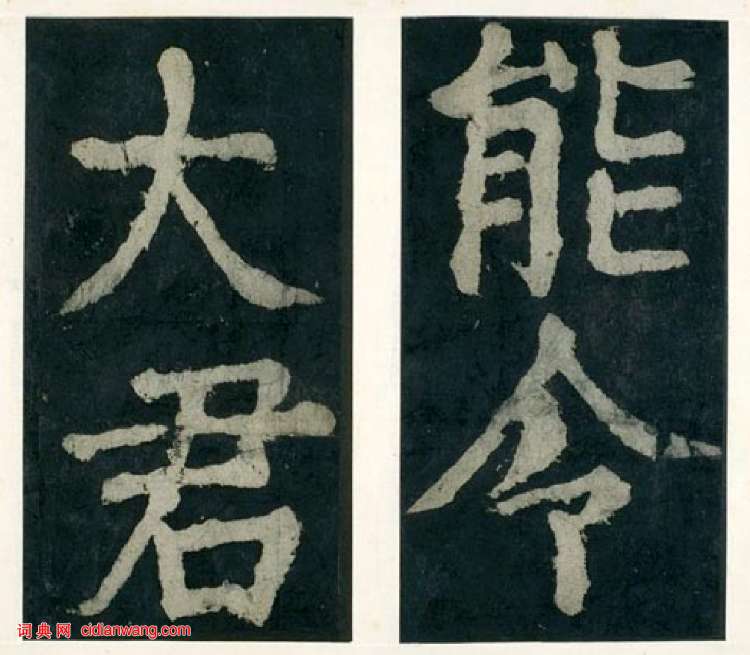 能令
大君
词典网 cidianwang.com